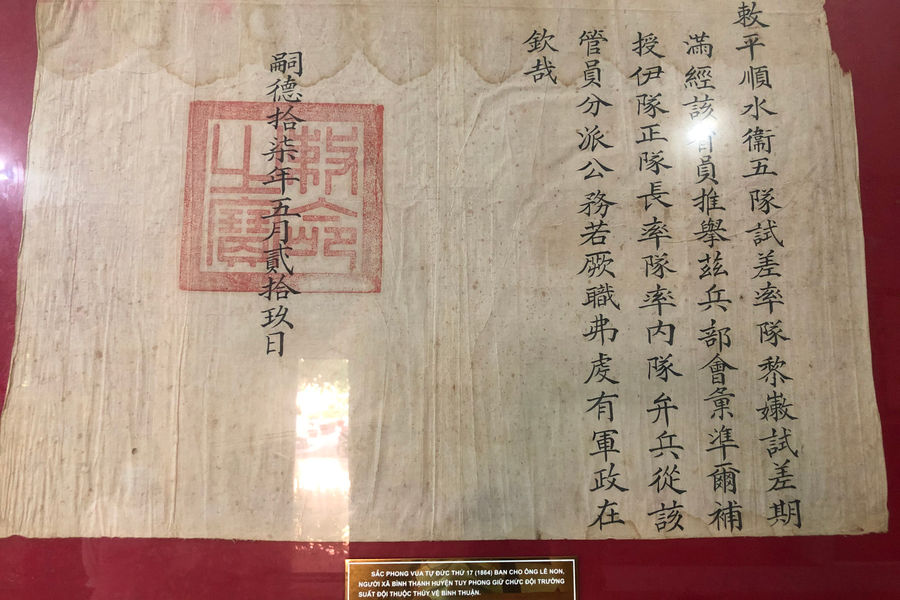 敕平順水衞五隊試差率隊黎嫩試差期
滿經該省員推舉茲兵部會彙準爾補
授伊隊正隊長率隊率內隊弁兵從該
管員分派公務若厥職弗虔有軍政在
欽哉
嗣德拾柒年五月貳拾玖日
敕命
之寶
SẮC PHONG VUA TỰ ĐỨC THỨ 17 (1864) BAN CHO ÔNG LÊ NON,
NGƯỜI XÃ BÌNH THẠNH HUYỆN TUY PHONG GIỮ CHỨC ĐỘI TRƯỞNG
SUẤT ĐỘI THUỘC THỦY VỆ BÌNH THUẬN.